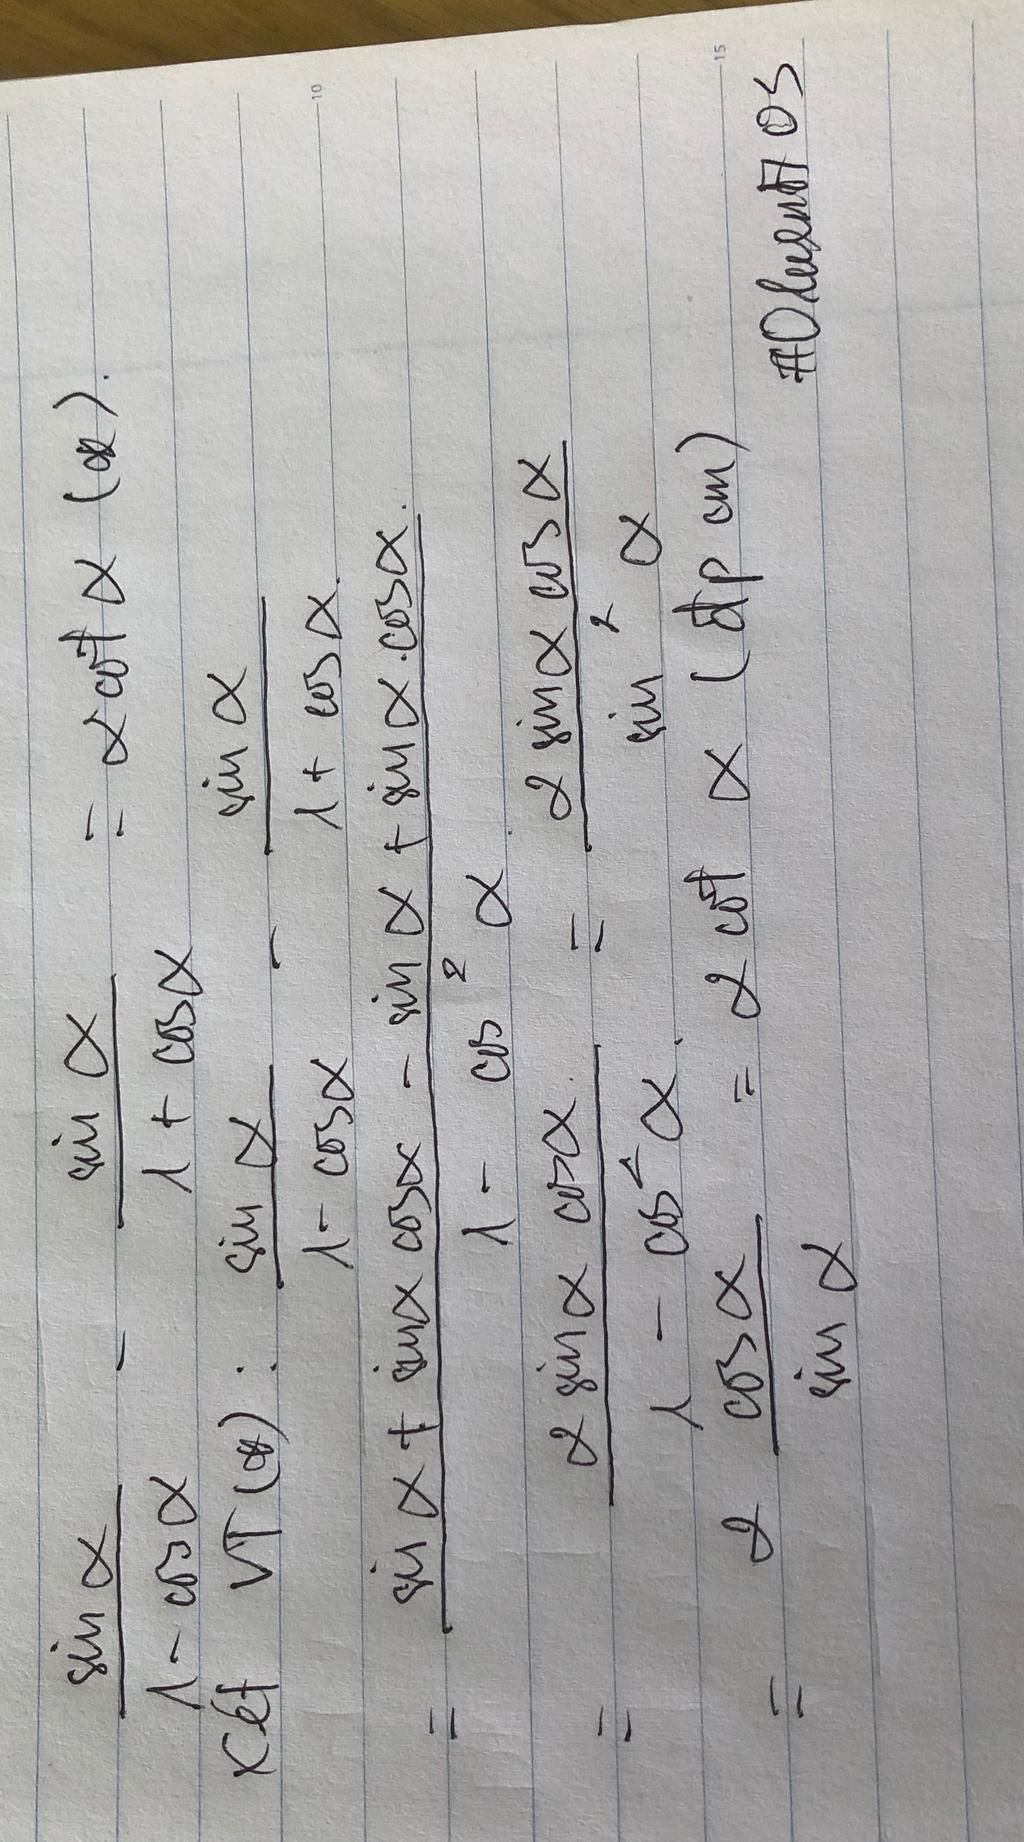 sin α / 1 - cos α - sin α / 1 + cos α = 2 cot α (*).
Xét VT (*) : sin α / 1 - cos α - sin α / 1 + cos α.
= sin α + sin α cos α - sin α + sin α . cos α. / 1 - cos² α
= 2 sin α cos α. / 1 - cos² α. = 2 sin α cos α / sin² α
= 2 cos α / sin α = 2 cot α (đpcm)
10
15